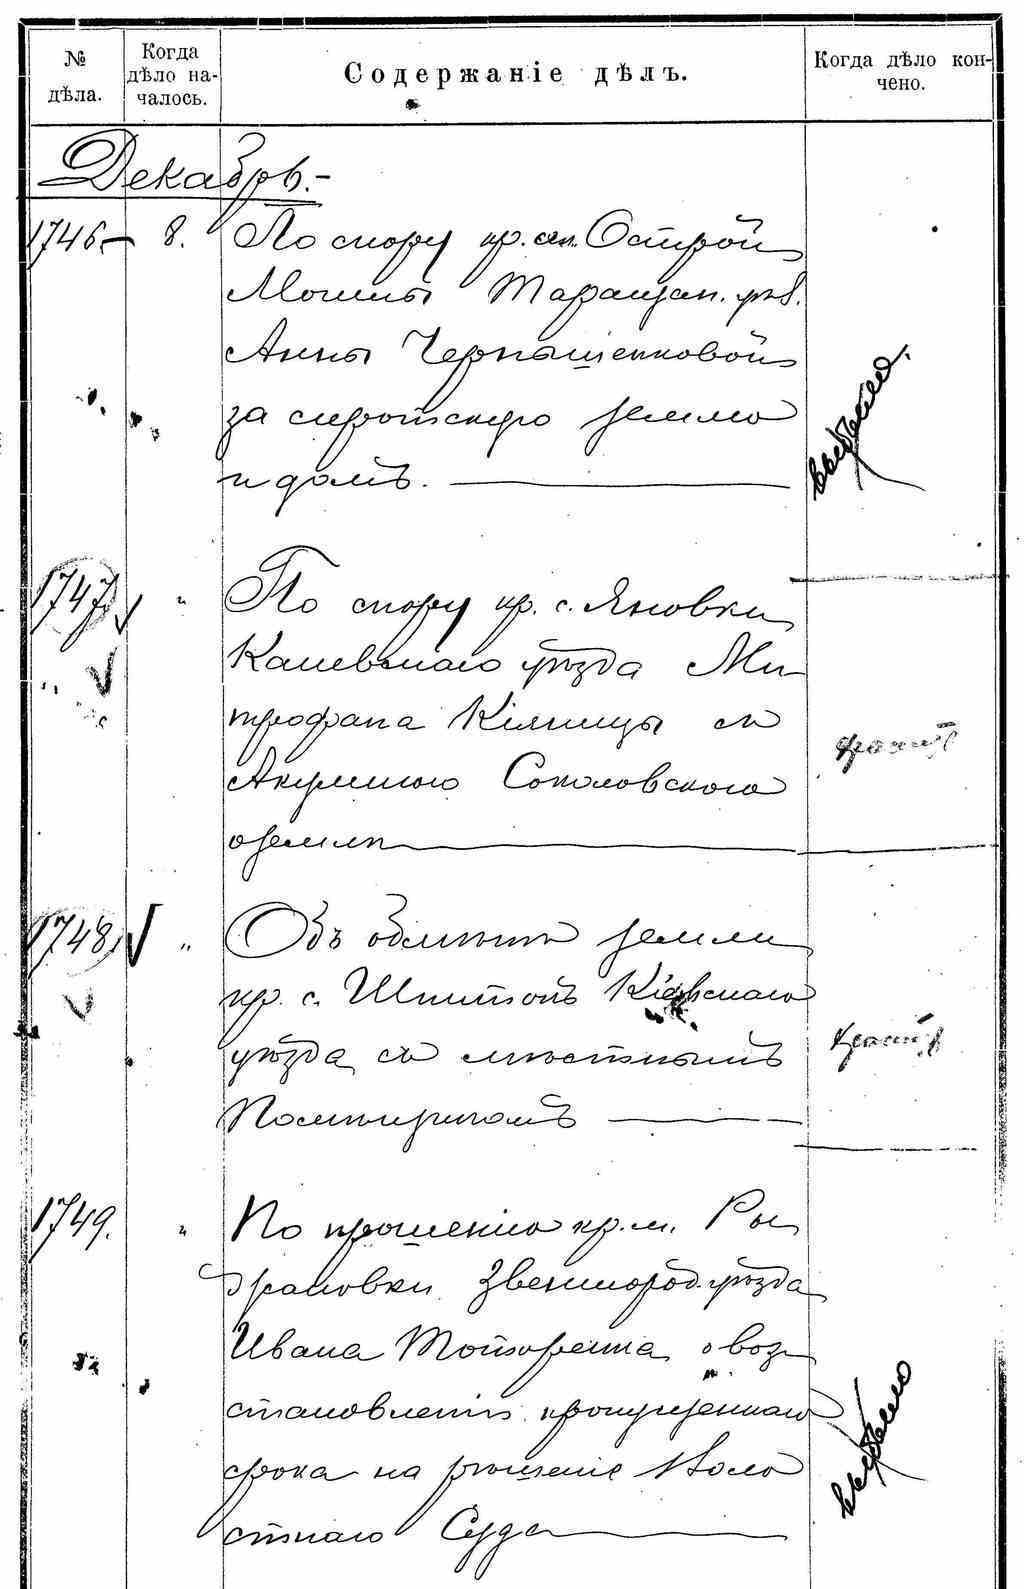 № дѣла.
Когда дѣло началось.
Содержаніе дѣлъ.
Когда дѣло кончено.
Декабрь.-
1746.- 8. По спору кр. с. Острой
Могилы Таращан. уѣз.
Анны Чернышенковой
за сиротскую землю
и домъ.
выбыло.
1747. " По спору кр. с. Яновки
Каневскаго уѣзда Ми-
трофана Кілницы съ
Акулиною Соколовского
о землѣ
1748. " Объ обмѣнѣ земли
кр. с. Шпитокъ Кіевскаго
уѣзда съ мѣстнымъ
Помѣщикомъ
1749. " По прошенію кр. м. Ры-
жановки Звенигород. уѣзда
Ивана Тоторенка о воз-
становленіи пропущеннаго
срока на рѣшеніе Воло-
стнаго Суда
выбыло